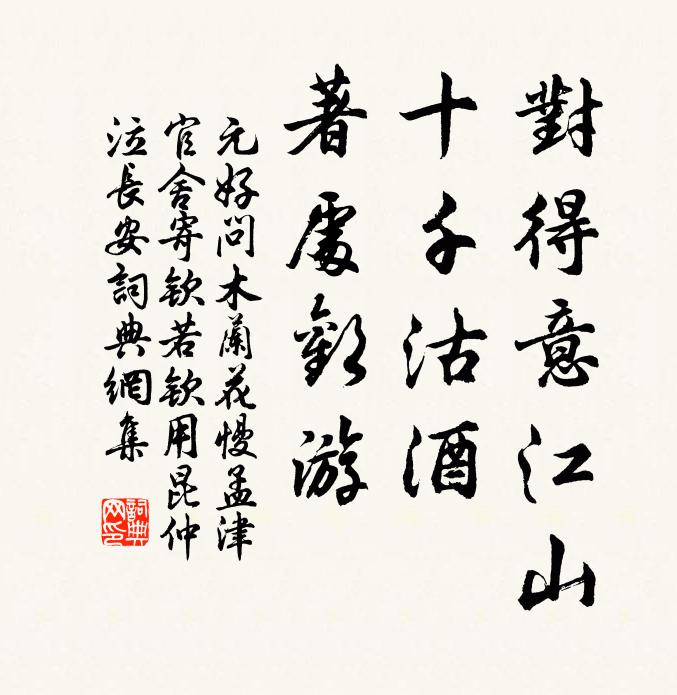 對得意江山
十千沽酒
著處歡游
元好問木蘭花慢孟津
官舍寄欽若欽用昆仲
並長安詞典網集
詞典
网印